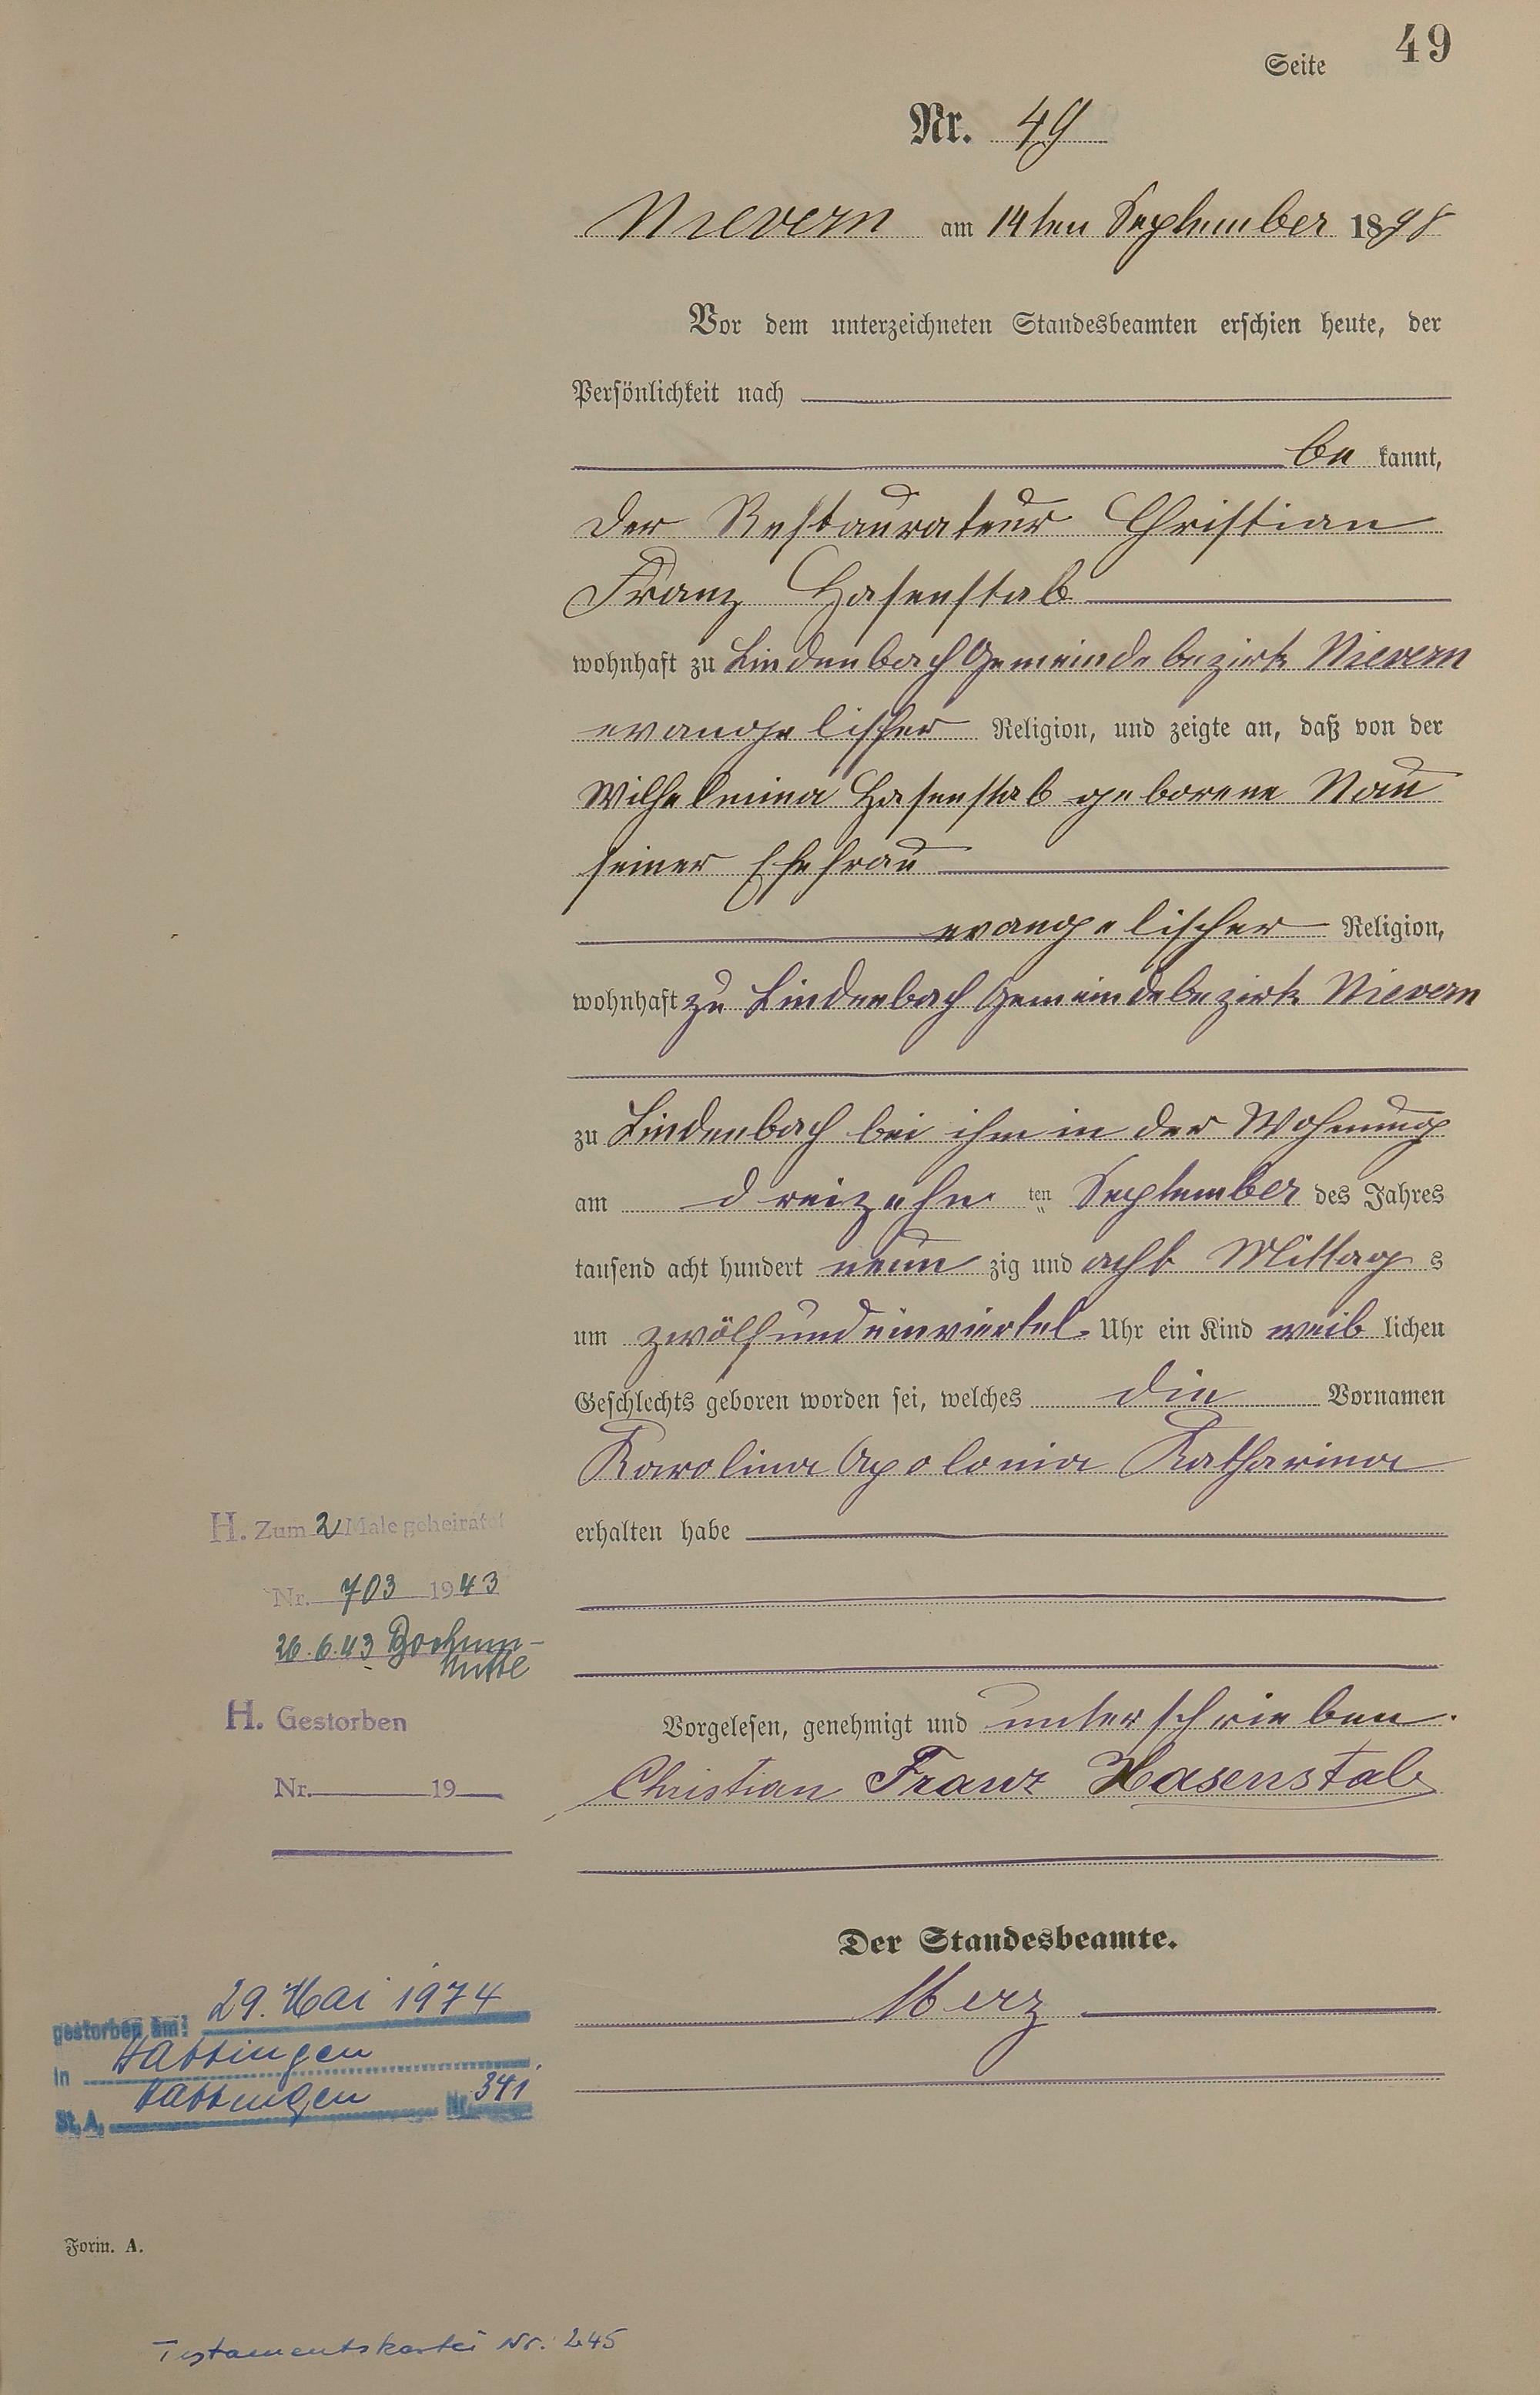 Seite 49
Nr. 49
Nievern am 14ten September 1898
Vor dem unterzeichneten Standesbeamten erschien heute, der
Persönlichkeit nach
be kannt,
der Restaurateur Christian
Franz Hasenstab
wohnhaft zu Lindenbach Gemeindebezirk Nievern
evangelischer Religion, und zeigte an, daß von der
Wilhelmina Hasenstab geborene Nau
seiner Ehefrau
evangelischer Religion,
wohnhaft zu Lindenbach Gemeindebezirk Nievern
zu Lindenbach bei ihm in der Wohnung
am dreizehn ten September des Jahres
tausend acht hundert neun zig und acht Mittag s
um zwölf und einviertel Uhr ein Kind weib lichen
Geschlechts geboren worden sei, welches die Vornamen
Karolina Apolonia Katharina
erhalten habe
H. Zum 2 Male geheiratet
Nr. 703 1943
26.6.43 Bochum-
Mitte
H. Gestorben
Nr. 19
Vorgelesen, genehmigt und unterschrieben.
Christian Franz Hasenstab
Der Standesbeamte.
Merz
gestorben am: 29. Mai 1974
in Hattingen
St. A. Hattingen Nr. 341
Form. A.
Testamentskartei Nr. 245